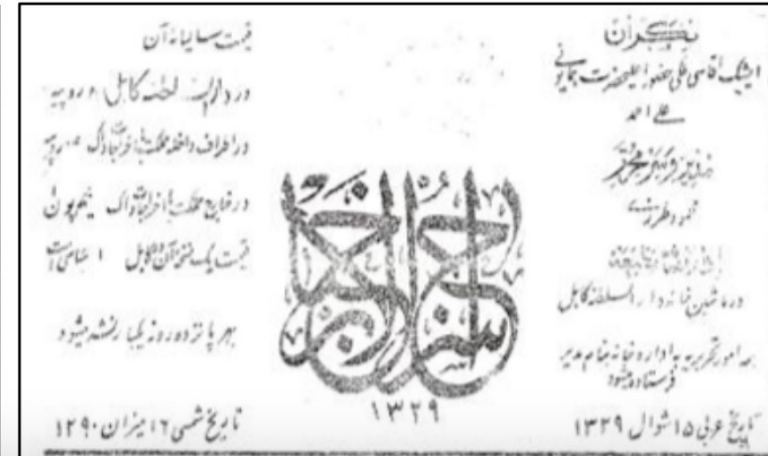 نگران
ایشک اقاسی ملکی حضور اعلیحضرت همایونی
علی احمد
مدیر و سرمحرر
محمود طرزی
در ماشین خانه دار السلطنه کابل
امور تحریریه به اداره خانه بنام مدیر
فرستاده میشود
تاریخ عربی ۱۵ شوال ۱۳۲۹
سراج الاخبار
۱۳۲۹
قیمت سالیانه آن
در دار السلطنه کابل روپیه
در اطراف داخله مملکت با اخراجات داک روپیه
در خارج مملکت با اخراجات داک نیم پون
قیمت یک نسخه آن در کابل
بهر پانزده روز یکبار نشر میشود
تاریخ شمسی ۱۶ میزان ۱۲۹۰